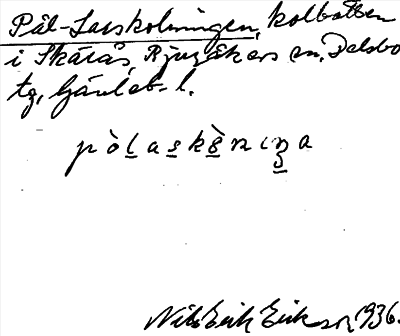 Pål-Larskolningen, kolbotten
i Skärås, Bjuråkers sn, Delsbo
tg, Gävleb. l.
pòlaskɐ̀nıŋa
Nils Erik Eriksson 1936.